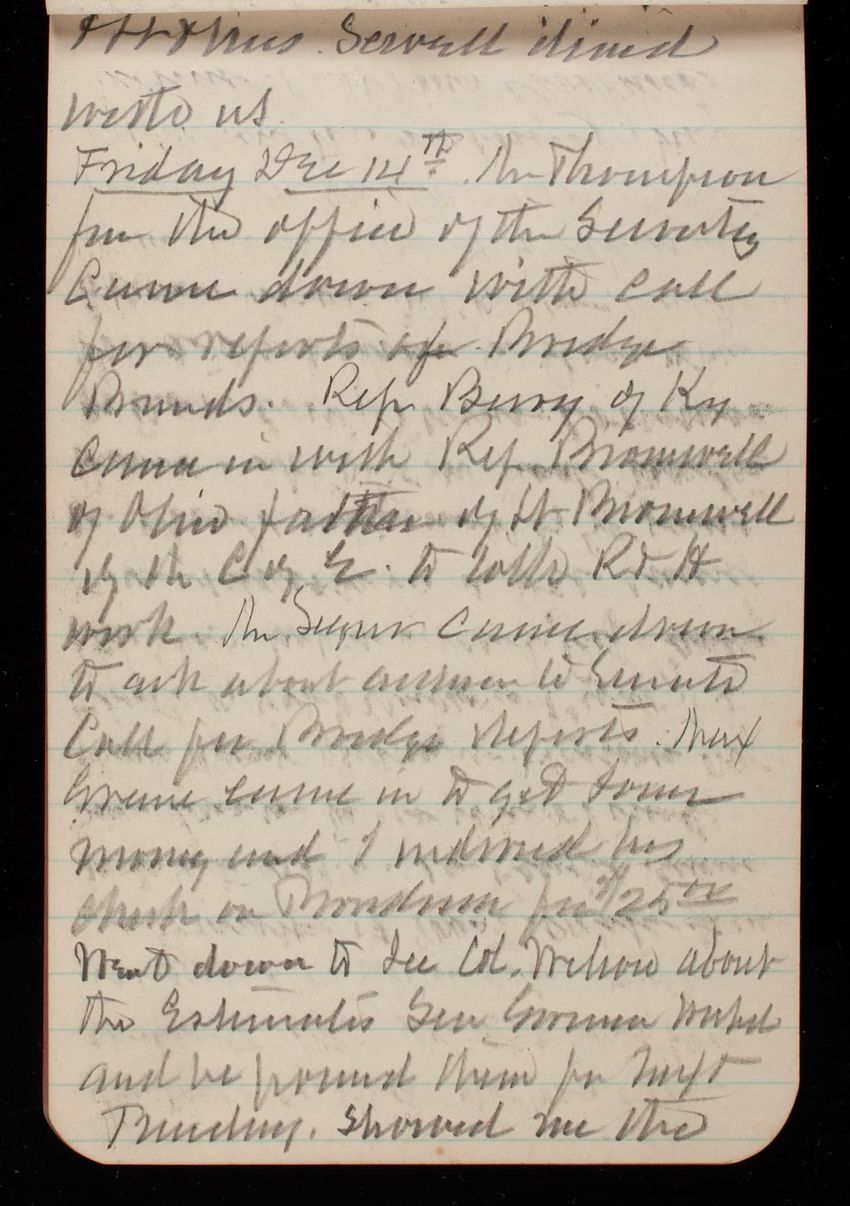 & Mrs. Sewell dined
with us.
Friday Dec 14th. Mr Thompson
from the office of the Secretary
Came down with call
for reports of Bridge
Bonds. Rep Berry of Ky
came in with Rep. Bromwell
of Ohio father of Lt Bromwell
of the C of E. to talk R & H
work. Mr. came down
to ask about answer to Senate
Call for Bridge Reports. Max
came in to get some
money and I indorsed his
check on for $125.00
Went down to see Col. Wilson about
the Estimates Sen Gorman
and he promised them for next
Tuesday. Showed me the